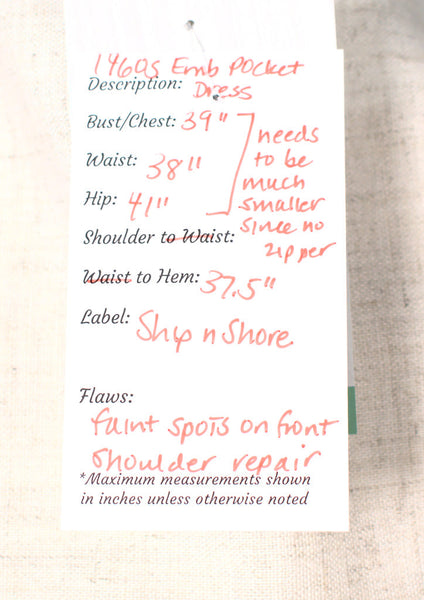 1960s Emb Pocket
Description: Dress
Bust/Chest: 39"
Waist: 38"
Hip: 41"
needs
to be
much
smaller
since no
zipper
Shoulder to Waist:
Waist to Hem: 37.5"
Label: Ship n Shore
Flaws:
faint spots on front
shoulder repair
*Maximum measurements shown
in inches unless otherwise noted